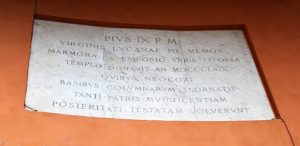 PIVS IX P M
VIRGINIS LVCANAE PIE MEMOR
MARMORA EX EMPORIO VRBIS EFFOSSA
TEMPLO DONAVIT AN MDCCCLXIX
QVIBVS NEOCORI
BASIBVS COLVMNARVM EXORNATIS
TANTI PATRIS MVNIFICENTIAM
POSTERITATI TESTATAM VOLVERVNT